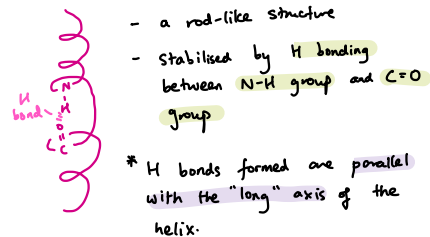 - a rod-like structure
- stabilised by H bonding
between N-H group and C=O
group
* H bonds formed are parallel
with the "long" axis of the
helix.
C N
H
H
bond
O
C C